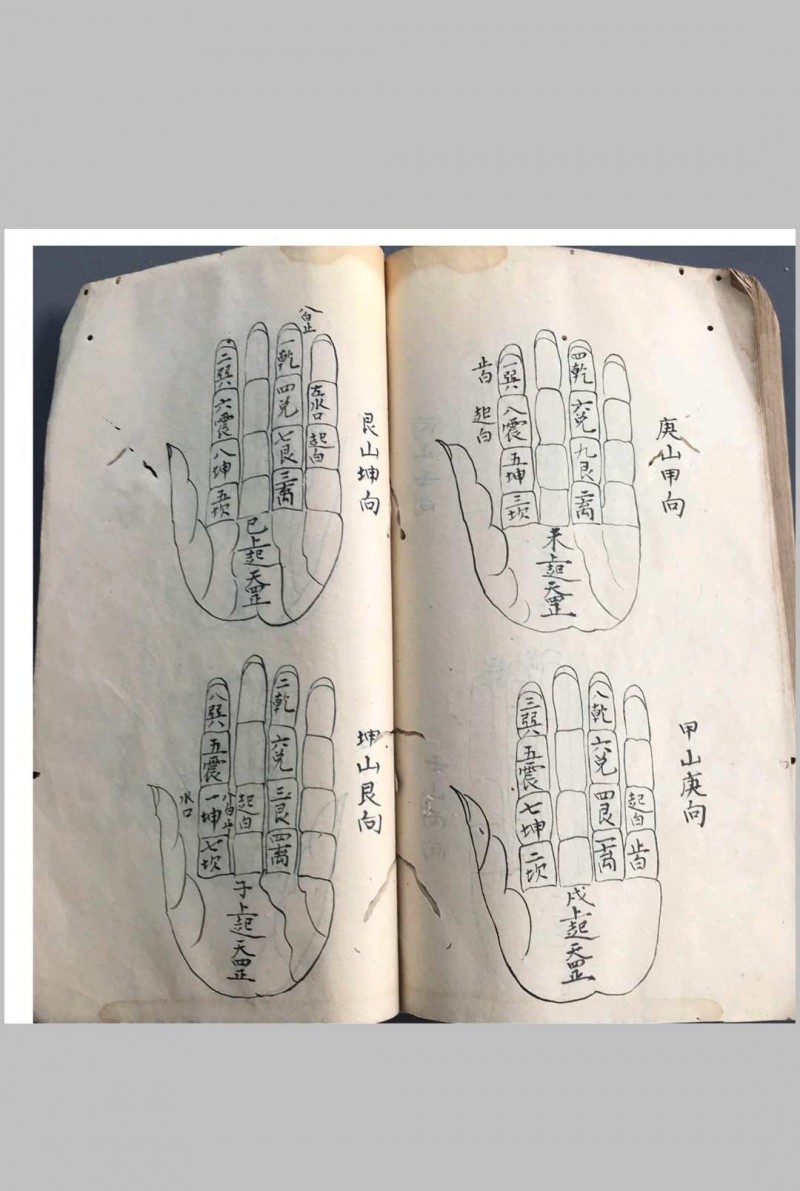 庚山甲向
四乾
六兌
九艮
二离
一巽
八震
五坤
三坎
起白
未上起天罡
甲山庚向
八乾
六兌
四艮
一离
起白
三巽
五震
七坤
二坎
戌上起天罡
艮山坤向
八白止
一乾
四兌
七艮
三离
左水口
起白
二巽
六震
八坤
五坎
巳上起天罡
坤山艮向
二乾
六兌
三艮
四离
起白
八白止
八巽
五震
一坤
七坎
水口
子上起天罡